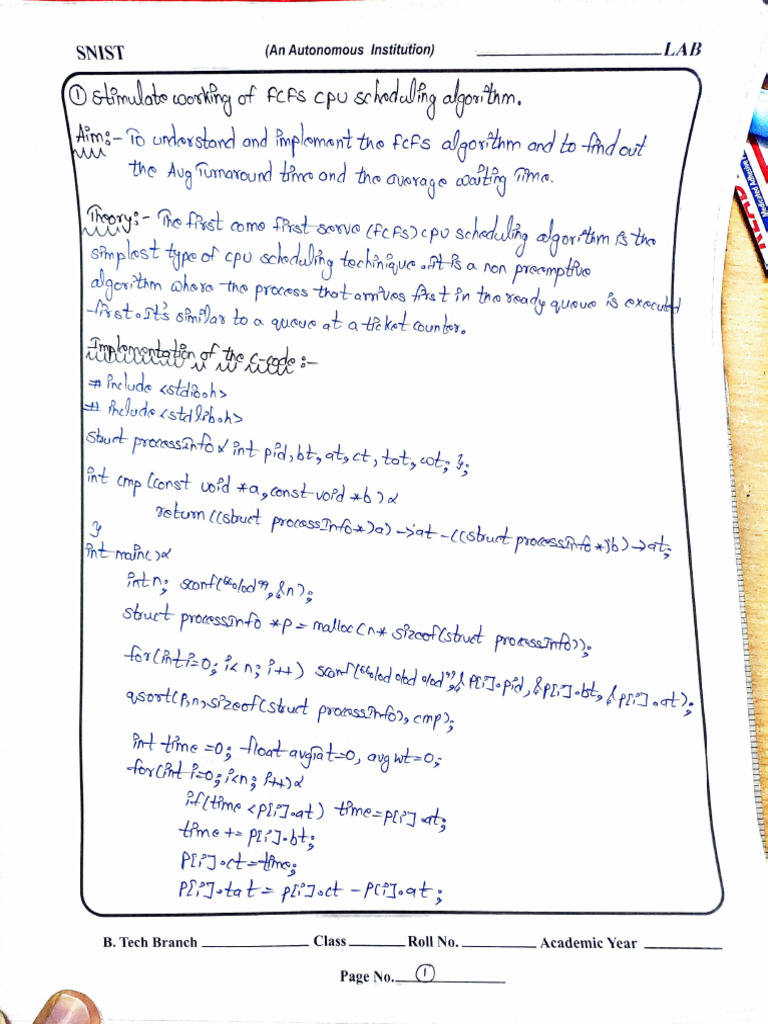 SNIST (An Autonomous Institution) LAB
① Stimulate working of FCFS CPU scheduling algorithm.
Aim:- To understand and implement the FCFS algorithm and to find out
the Avg Turnaround time and the average waiting Time.
Theory:- The first come first serve (FCFS) CPU scheduling algorithm is the
simplest type of CPU scheduling techinique. it is a non preemptive
algorithm where the process that arrives first in the ready queue is executed
first. It's similar to a queue at a ticket counter.
Implementation of the C-code:-
# include <stdio.h>
# include <stdlib.h>
struct processInfo { int pid, bt, at, ct, tat, wt; };
int cmp (const void *a, const void *b) {
return ((struct processInfo *)a) -> at - ((struct processInfo *)b) -> at;
}
int main() {
int n; scanf("%d", &n);
struct processInfo *p = malloc(n* sizeof(struct processInfo));
for(int i=0; i<n; i++) scanf("%d %d %d", &p[i].pid, &p[i].bt, &p[i].at);
qsort(p,n,sizeof(struct processInfo), cmp);
int time =0; float avgtat=0, avgwt=0;
for(int i=0; i<n; i++) {
if(time <p[i].at) time=p[i].at;
time += p[i].bt;
p[i].ct=time;
p[i].tat= p[i].ct - p[i].at;
B. Tech Branch Class Roll No. Academic Year
Page No. ①